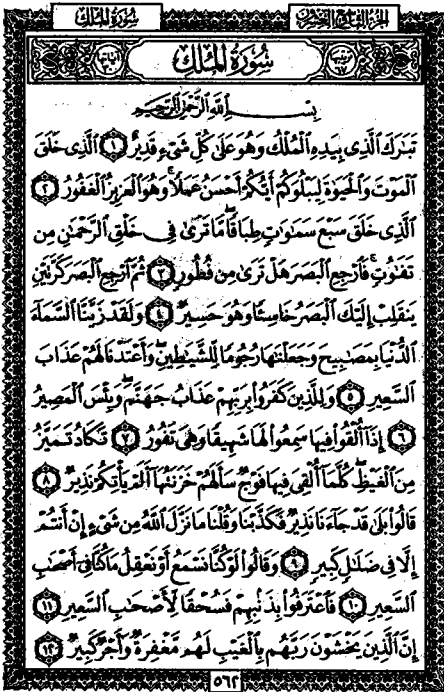 سُورَةُ المُلْكِ
الجزء التاسع والعشرون
ترتيبها ٦٧ سُورَةُ المُلْكِ آياتها ٣٠
بِسْمِ اللَّهِ الرَّحْمَٰنِ الرَّحِيمِ
تَبَٰرَكَ ٱلَّذِى بِيَدِهِ ٱلْمُلْكُ وَهُوَ عَلَىٰ كُلِّ شَىْءٍ قَدِيرٌ ١ ٱلَّذِى خَلَقَ
ٱلْمَوْتَ وَٱلْحَيَوٰةَ لِيَبْلُوَكُمْ أَيُّكُمْ أَحْسَنُ عَمَلًا ۚ وَهُوَ ٱلْعَزِيزُ ٱلْغَفُورُ ٢
ٱلَّذِى خَلَقَ سَبْعَ سَمَٰوَٰتٍ طِبَاقًا ۖ مَّا تَرَىٰ فِى خَلْقِ ٱلرَّحْمَٰنِ مِن
تَفَٰوُتٍ ۖ فَٱرْجِعِ ٱلْبَصَرَ هَلْ تَرَىٰ مِن فُطُورٍ ٣ ثُمَّ ٱرْجِعِ ٱلْبَصَرَ كَرَّتَيْنِ
يَنقَلِبْ إِلَيْكَ ٱلْبَصَرُ خَاسِئًا وَهُوَ حَسِيرٌ ٤ وَلَقَدْ زَيَّنَّا ٱلسَّمَآءَ
ٱلدُّنْيَا بِمَصَٰبِيحَ وَجَعَلْنَٰهَا رُجُومًا لِّلشَّيَٰطِينِ ۖ وَأَعْتَدْنَا لَهُمْ عَذَابَ
ٱلسَّعِيرِ ٥ وَلِلَّذِينَ كَفَرُوا۟ بِرَبِّهِمْ عَذَابُ جَهَنَّمَ ۖ وَبِئْسَ ٱلْمَصِيرُ
٦ إِذَآ أُلْقُوا۟ فِيهَا سَمِعُوا۟ لَهَا شَهِيقًا وَهِىَ تَفُورُ ٧ تَكَادُ تَمَيَّزُ
مِنَ ٱلْغَيْظِ ۖ كُلَّمَآ أُلْقِىَ فِيهَا فَوْجٌ سَأَلَهُمْ خَزَنَتُهَآ أَلَمْ يَأْتِكُمْ نَذِيرٌ ٨
قَالُوا۟ بَلَىٰ قَدْ جَآءَنَا نَذِيرٌ فَكَذَّبْنَا وَقُلْنَا مَا نَزَّلَ ٱللَّهُ مِن شَىْءٍ إِنْ أَنتُمْ
إِلَّا فِى ضَلَٰلٍ كَبِيرٍ ٩ وَقَالُوا۟ لَوْ كُنَّا نَسْمَعُ أَوْ نَعْقِلُ مَا كُنَّا فِىٓ أَصْحَٰبِ
ٱلسَّعِيرِ ١٠ فَٱعْتَرَفُوا۟ بِذَنۢبِهِمْ فَسُحْقًا لِّأَصْحَٰبِ ٱلسَّعِيرِ ١١
إِنَّ ٱلَّذِينَ يَخْشَوْنَ رَبَّهُم بِٱلْغَيْبِ لَهُم مَّغْفِرَةٌ وَأَجْرٌ كَبِيرٌ ١٢
٥٦٢